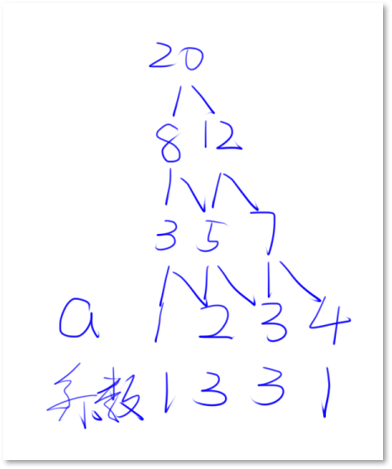 20
8 12
3 5 7
a 1 2 3 4
系数 1 3 3 1